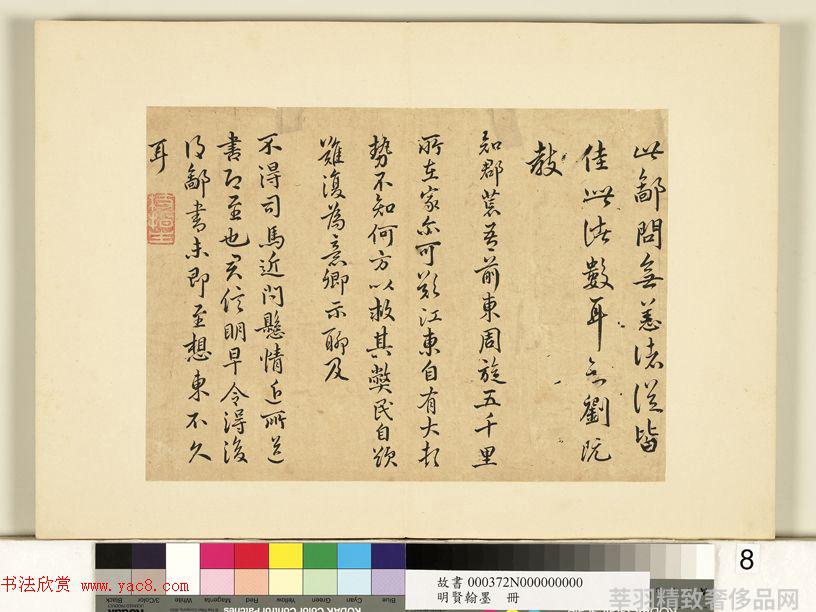 此鄱問無恙諸從皆
佳此諸數耳告劉阮
敖
知郡荒吾前東周旋五千里
所在家尔可歎江東自有大頓
勢不知何方以救其弊民自欲
難復為意卿示聊及
不得司馬近問懸情近所送
書即至也定信明早令得復
得鄱書未即至想東不久
耳
8
故書 000372N000000000
明賢翰墨 冊
书法欣赏 www.yac8.com
莘羽精致奢侈品网
Blue
Cyan
Green
Yellow
Red
Magenta
White
3/Color
Black